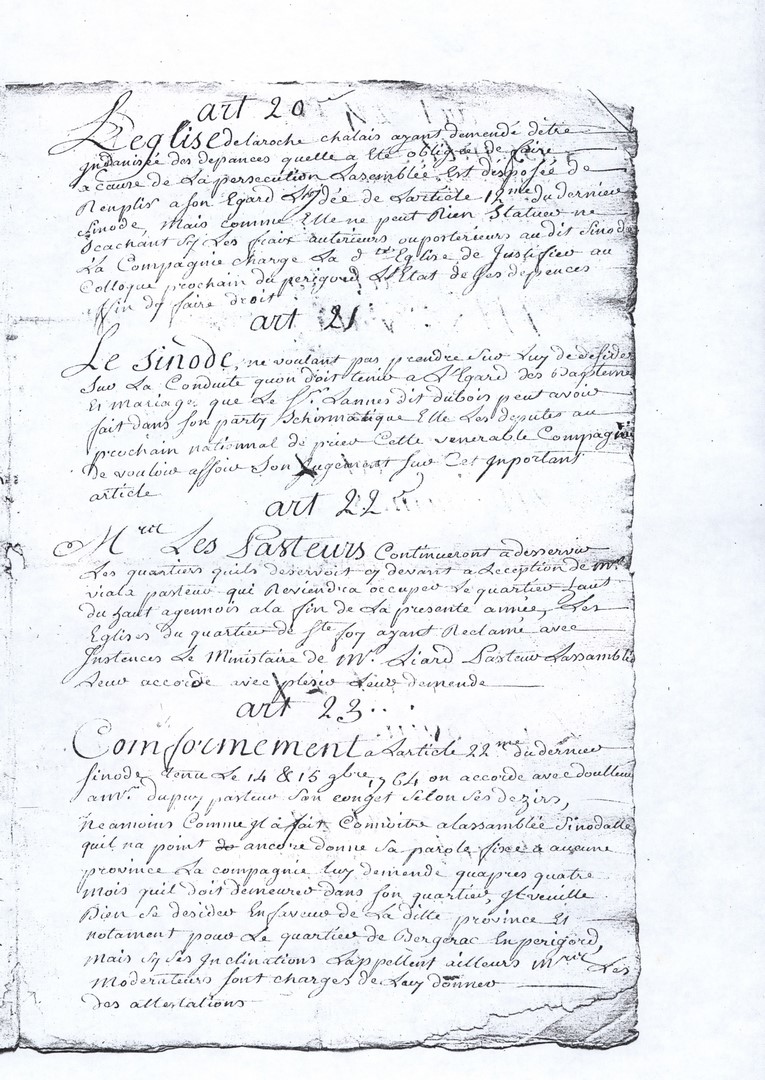 art 20
L'eglise de laroche chalais ayant demendé d'etre
jndanisée des depances quelle a Eté obligée de faire
a Cause de La persecution Lasemblée Est desposée de
Renplir a son Egard L'ydée de Larticle 12me du dernier
sinode, mais comme Elle ne peut Rien Statuer ne
Scachant sy Les fraix anterieurs ou posterieurs au dit sinode
La Compagnie charge La d te Eglise de Justifier au
Colloque prochain du perigord L'Etat de ses depences
affin dy faire droit
art 21
Le sinode, ne voulant pas prendre sur Luy de desider
sur La Conduite quon doit tenir a L'Egard des Bapteme
Et mariage que Le Sr. Lannes dit dubois peut avoir
fait dans son party Schismatique Elle Les deputes au
prochain nationnal de prier Cette venerable Compagnie
de vouloir assoir son jugement sur Cet jnportant
article
art 22
Mrs Les Pasteurs Continueront a desservir
Les quartiers quils deservoit cy devant a Leception de mr.
viala pasteur qui Reviendra occuper Le quartier haut
du haut agennois a la fin de La presente année, Les
Eglises du quartier de Ste foy ayant Reclamé avec
Jnstences Le Ministaire de Mr. Liard Pasteur Lassemblée
Leur accorde avec plesir Leur demende
art 23
Comformement a Larticle 22me du dernier
sinode tenu Le 14 & 15 9bre 1764 on accorde avec doulleur
a mr. dupuy pasteur son conget selon ses dezirs,
Neamoins Comme jl a fait Connoitre a lassamblée Sinodalle
quil na point de ancore donne sa parole fixe a aucune
province La compagnie Luy demende quapres quatre
mois quil doit demeurer dans son quartier, jl veuille
Bien se desider En faveur de La ditte province Et
notament pour Le quartier de Bergerac En perigord,
mais sy ses jnclinations Lappellent ailleurs Mrs Les
moderateurs sont charges de Luy donner
des attestations